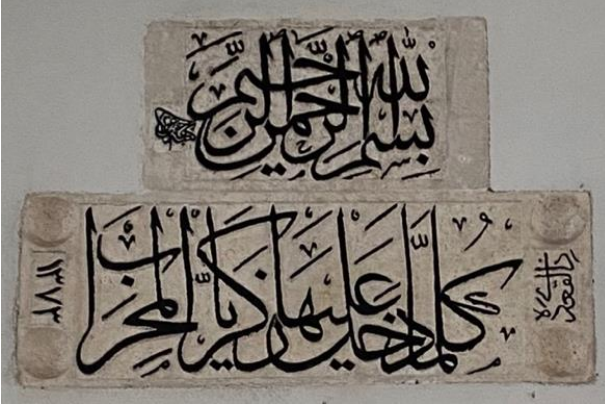 بسم الله الرحمن الرحيم
كلما دخل عليها زكريا المحراب
ذي القعدة
١٣٧٣